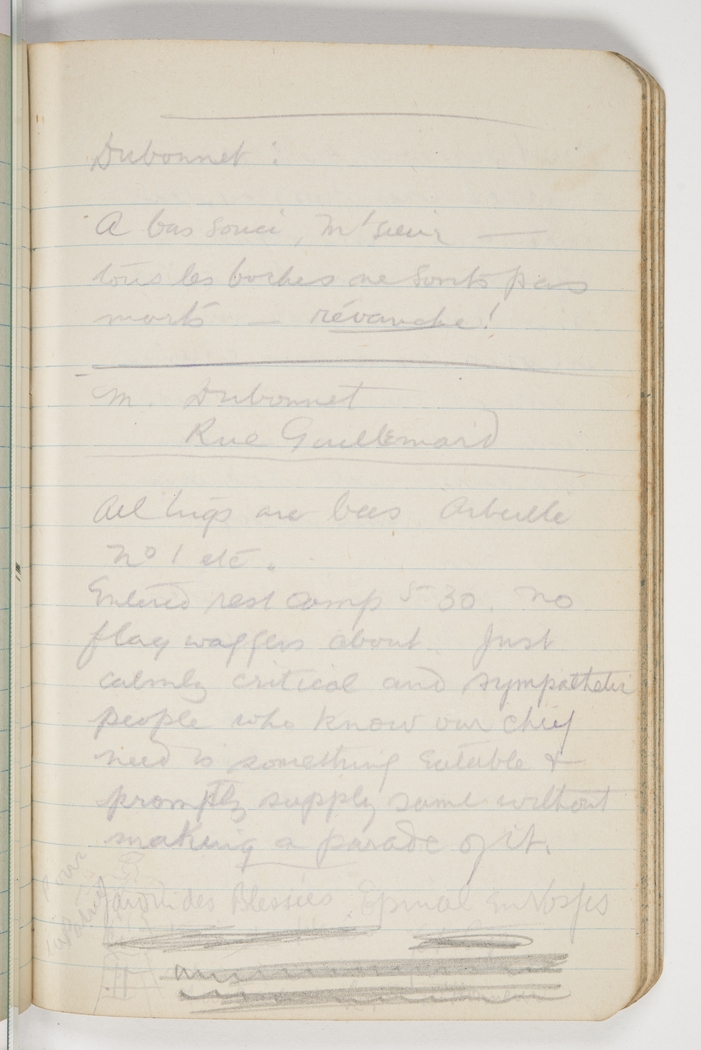 Dubonnet :
A bas souci, M'sieur —
tous les boches ne sonts pas
morts — révanche !
M. Dubonnet
Rue Guillemard
All trips are bees
No 1 etc.
Entered rest camp 5-30. No
flag waggers about. Just
calmly critical and sympathetic
people who know our chief
need is something eatable &
promptly supply same without
making a parade of it.
des Blessées Epinal en Vosges
pour